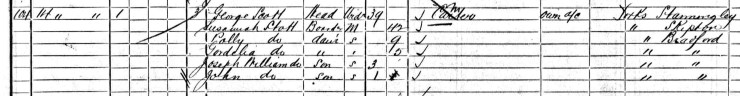 104 114 " " 1 George Scott Head Widr 39 own a/c Yorks Stanningley
Susannah Stott Boarder M 42 " Skipton
Polly do daur s 9 " Bradford
Cordelia do " " 5 " "
Joseph William do son s 3 " "
John do son s 1 " "